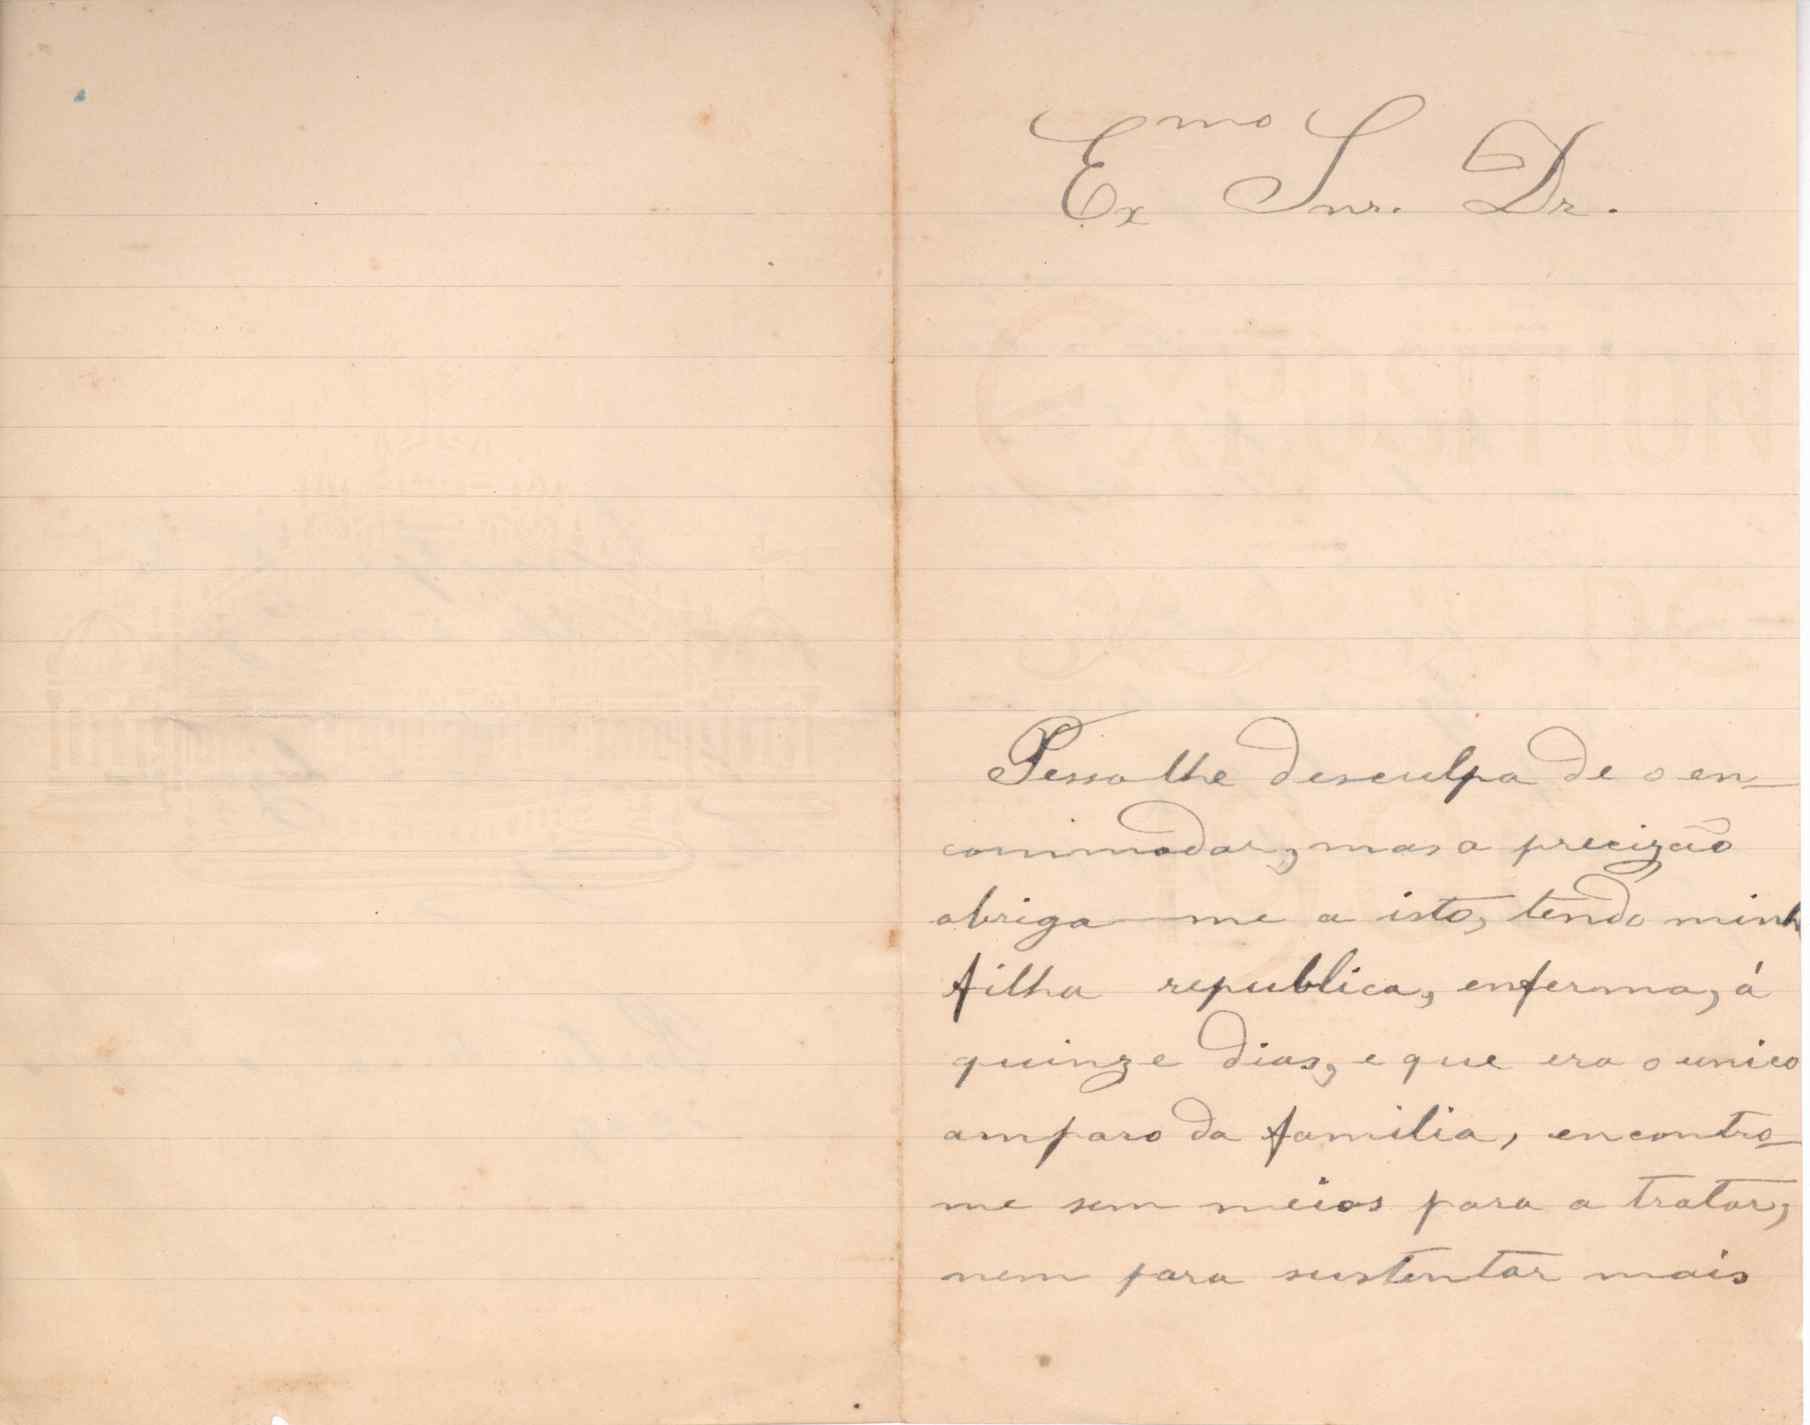 Exmo Snr. Dr.
Pesso lhe desculpa de o en-
commodar, mas a precizão
obriga-me a isto, tendo minh
filha republica, enferma, á
quinze dias, e que era o unico
amparo da familia, encontro-
me sem meios para a tratar,
nem para sustentar mais